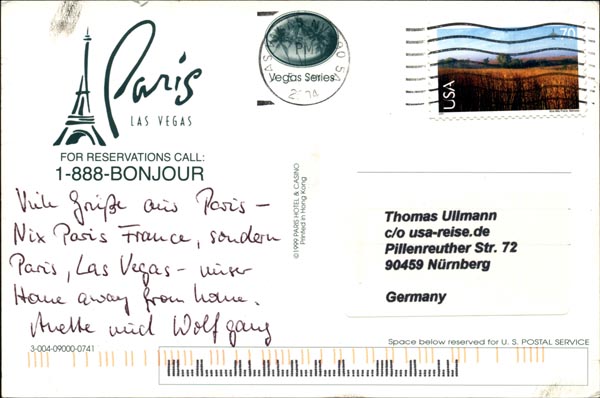 Paris
LAS VEGAS
FOR RESERVATIONS CALL:
1-888-BONJOUR
Viele Grüße aus Paris –
Nix Paris France, sondern
Paris, Las Vegas – unser
Home away from home.
Anette und Wolfgang
3-004-09000-0741
Vegas Series
PM
2004
©1999 PARIS HOTEL & CASINO
Printed in Hong Kong
70
USA
Thomas Ullmann
c/o usa-reise.de
Pillenreuther Str. 72
90459 Nürnberg
Germany
Space below reserved for U.S. POSTAL SERVICE